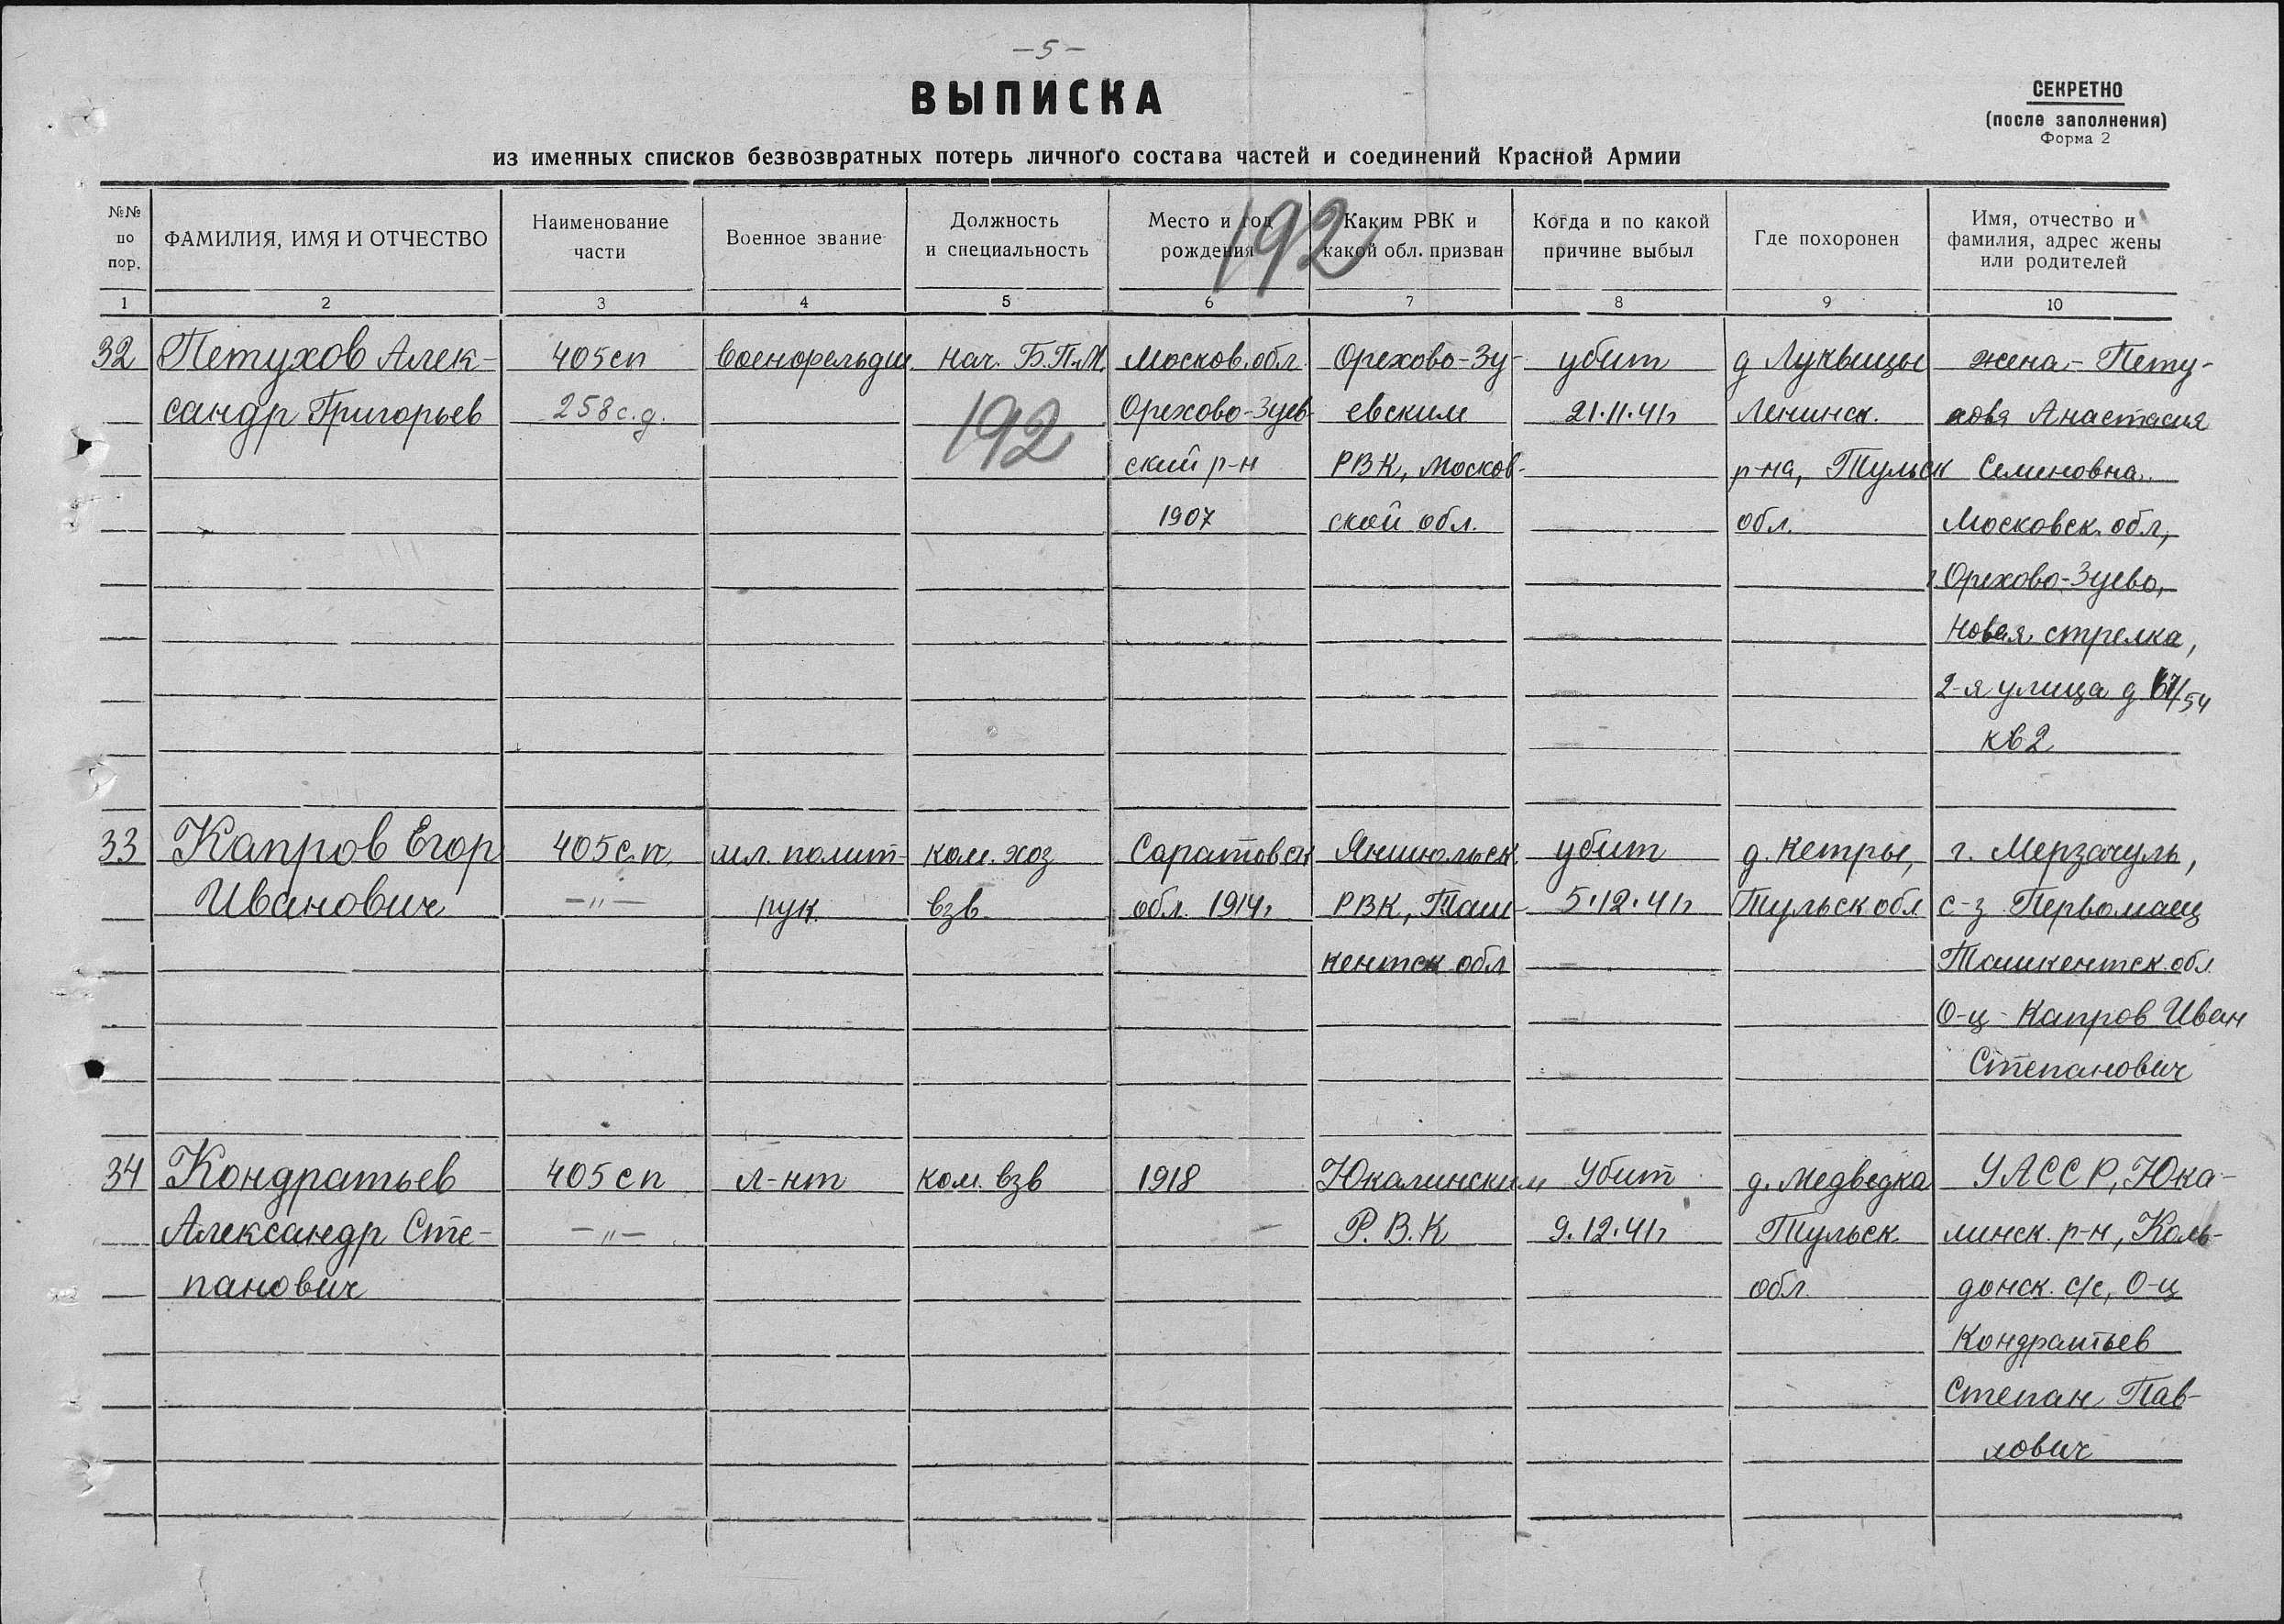 – 5 –
ВЫПИСКА
СЕКРЕТНО
(после заполнения)
Форма 2
из именных списков безвозвратных потерь личного состава частей и соединений Красной Армии
№№ по пор.
ФАМИЛИЯ, ИМЯ И ОТЧЕСТВО
Наименование части
Военное звание
Должность и специальность
Место и год рождения
Каким РВК и какой обл. призван
Когда и по какой причине выбыл
Где похоронен
Имя, отчество и фамилия, адрес жены или родителей
192
1 2 3 4 5 6 7 8 9 10
32 Петухов Алек- 405сп военфельдш. нач. Б.П.М. Москов. обл. Орехово-Зу- убит д Луквицы жена - Пету-
сандр Григорьев 258 с.д. Орехово-Зуев- евским 21.11.41г Ленинск. хова Анастасия
192
ский р-н РВК, Москов- р-на, Тульск Семеновна.
1907 ской обл. обл. Московск. обл,
г Орехово-Зуево,
Новая стрелка,
2-я улица д /54
кв 2
33 Капров Егор 405с.п. мл. полит- ком. хоз Саратовск убит д. Кетры, г. Мерзачуль,
Иванович –"– рук. взв. обл. 1914г РВК, Таш- 5.12.41г Тульск обл с-з Первомаец
кентск обл Ташкентск. обл
О-ц - Капров Иван
Степанович
34 Кондратьев 405 сп л-нт ком. взв 1918 Юкалинским Убит д. Медведка УАССР, Юка-
Александр Сте- –"– – Р.В.К 9.12.41г Тульск. минск. р-н, Коль-
панович обл. донск. с/с, О-ц
Кондратьев
Степан Пав-
лович